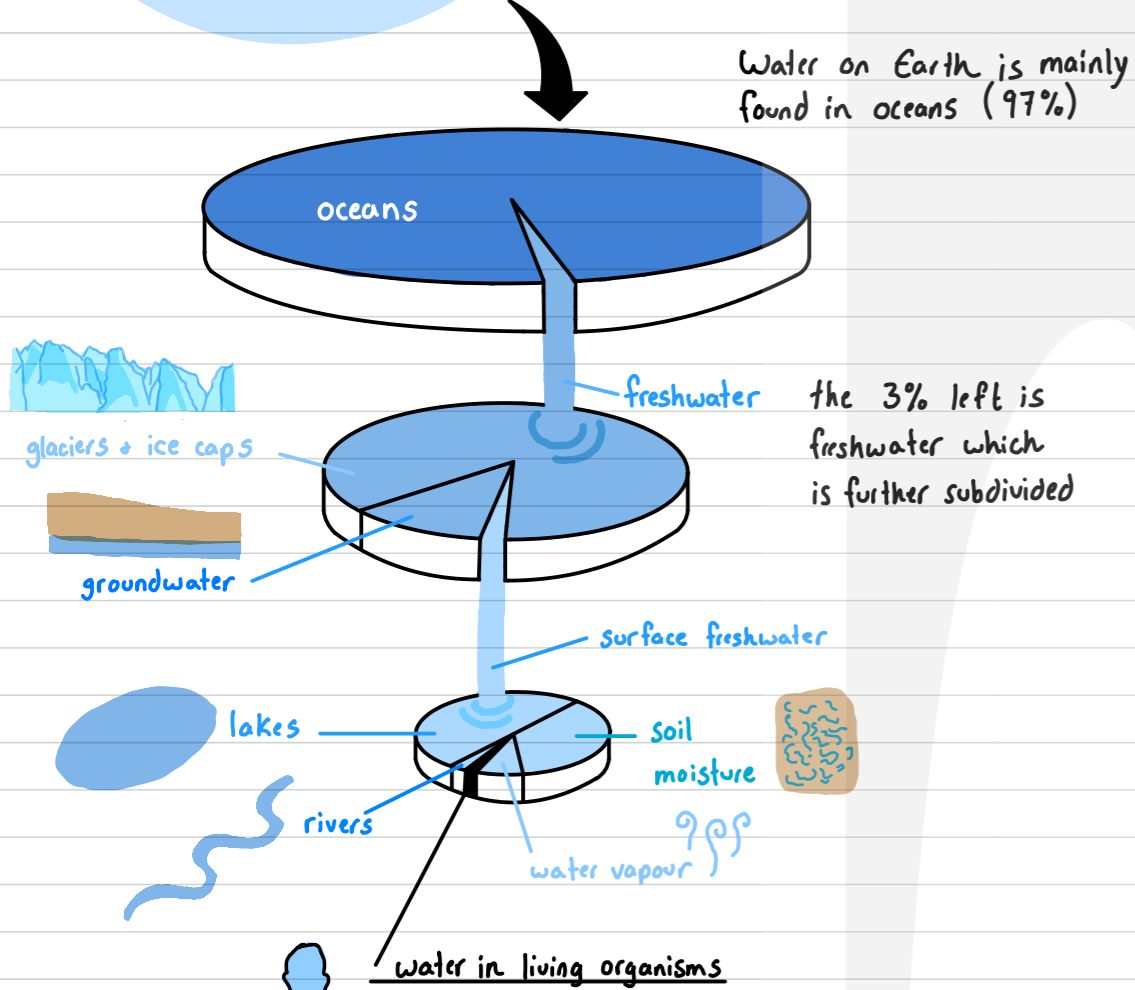 Water on Earth is mainly
found in oceans (97%)
oceans
freshwater
the 3% left is
freshwater which
is further subdivided
glaciers + ice caps
groundwater
surface freshwater
lakes
soil
moisture
rivers
water vapour
water in living organisms